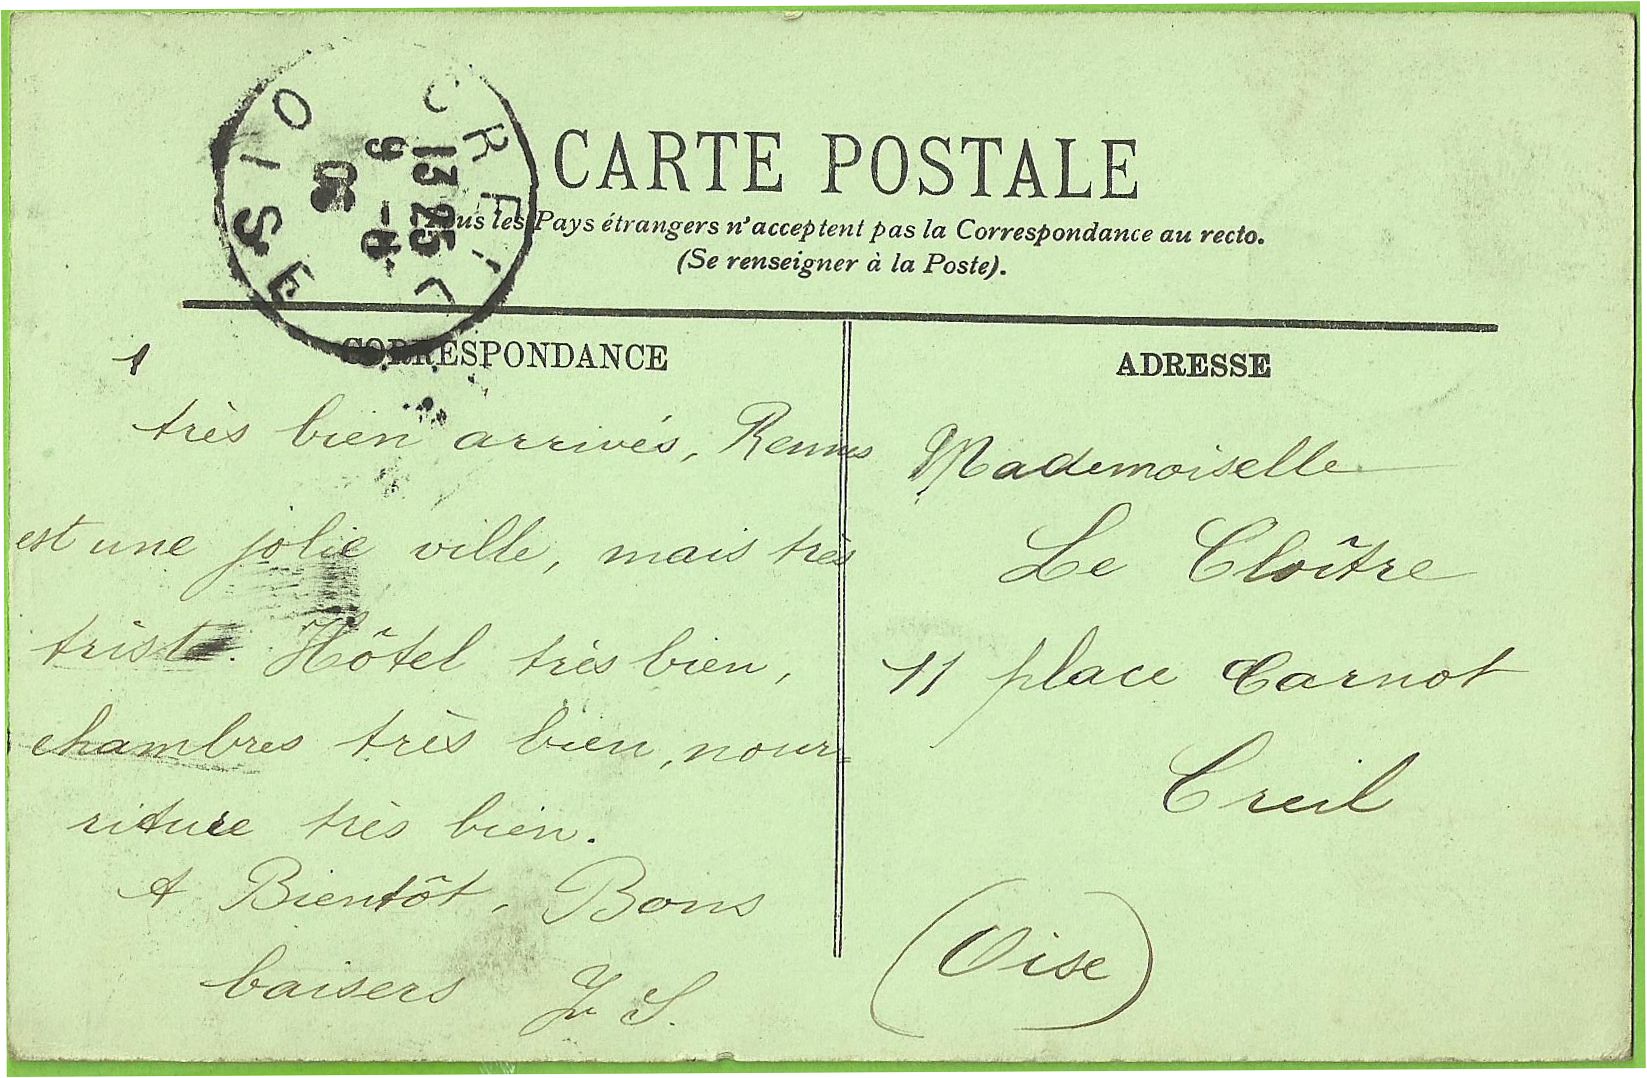 CARTE POSTALE
les Pays étrangers n'acceptent pas la Correspondance au recto.
(Se renseigner à la Poste).
CREIL
OISE
13 25
CORRESPONDANCE
ADRESSE
1
très bien arrivés, Rennes
est une jolie ville, mais très
triste. Hôtel très bien,
chambres très bien, nour=
riture très bien.
A Bientôt, Bons
baisers
Mademoiselle
Le Cloître
11 place Carnot
Creil
(Oise)